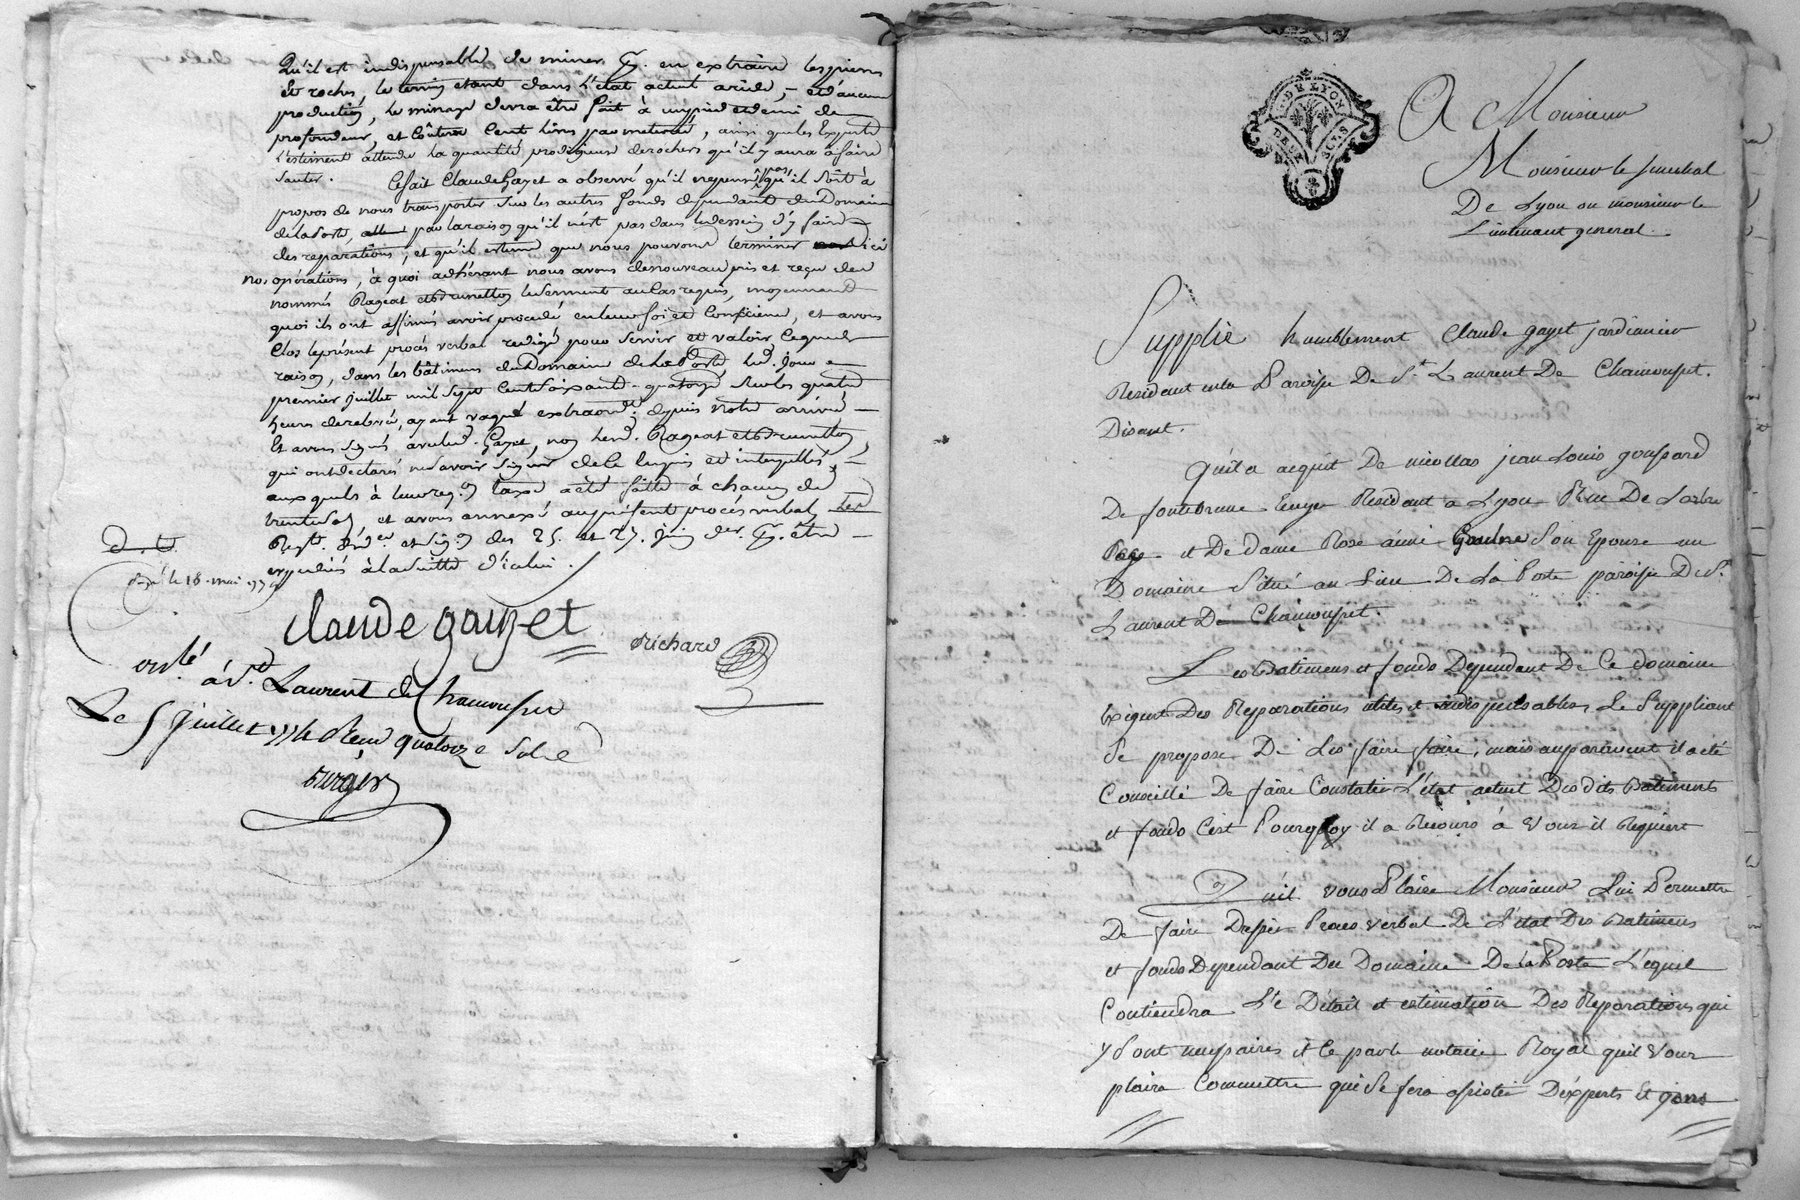 Qu'il est indispensable de miner & en extraire les pierres
et roches, le terrein etant dans l'état actuel aride, et d'aucune
production, le minage devra être fait à un pied et demi de
profondeur, et coûtera cent livres par meterée, ainsi que les Experts
l'estiment attendu la quantité prodigieuse de rochers qu'il y aura à faire
sauter. Ce fait Claude Gayet a observé qu'il ne pense pas qu'il soit à
propos de nous transporter sur les autres fonds dépendants du Domaine
de la Porte, par la raison qu'il n'est pas dans le dessein d'y faire
des reparations, et qu'il estime que nous pouvons terminer ici
nos opérations, à quoi adhérant nous avons de nouveau pris et reçu des
nommés Rageat et Brunetton le serment au cas requis, moyennant
quoi ils ont affirmé avoir procédé en leur foi et conscience, et avons
clos le présent procès verbal redigé pour servir et valoir ce que de
raison, dans les bâtimens du Domaine de la Porte led. jour
premier juillet mil sept cent soixante-quatorze sur les quatre
heures de relevée, ayant vaqué extraord.t depuis notre arrivée
Et avons signé, avec led. Gayet, non lesd. Rageat et Brunetton,
qui ont declaré ne savoir signer de ce enquis et interpellés,
auxquels à leur req.on taxe a été faitte à chacun de
trente sols, et avons annexé au présent procès verbal les
Req.te ord.ce et sig.on des 25. et 27. juin der. & être
expediés à la suitte d'icelui.
claude gayet
Richard
Con.lé à St. Laurent de Chamousset
Le 5 juillet 1774 Reçu quatorze sols
A Monsieur
Monsieur le senechal
De Lyon ou monsieur le
Lieutenant general.
DE LYON
DEUX SOLS
Supplie humblement Claude gayet jardinier
Residant en la Paroisse De St Laurent De Chamousset.
Disant.
Qu'il a acquit De nicollas jean Louis goussard
De fontebrune Ecuyer Residant a Lyon Rue De Larbre
Sec et De Dame Rose aimé Son Epouse un
Domaine Situé au Lieu De La Porte paroisse De St.
Laurent De Chamousset.
Les Batimens et fonds Dependant De Ce domaine
Exigent Des Reparations utiles et indispensables, Le Suppliant
Se propose De Les faire faire, mais auparavent il a été
Conseillé De faire Constater L'état actuel Des dits Batiments
et fonds C'est Pourquoy il a Recours à Vous il Requiert
Qu'il vous Plaise Monsieur Lui Permettre
De faire Dresser Proces Verbal De L'état Des Batimens
et fonds Dependant Du Domaine De la Porte Lequel
Contiendra Le Détail et estimation Des Reparations qui
y Sont necessaires et ce par le notaire Royal quil Vous
plaira Commettre qui Se fera assister D'experts Et gens